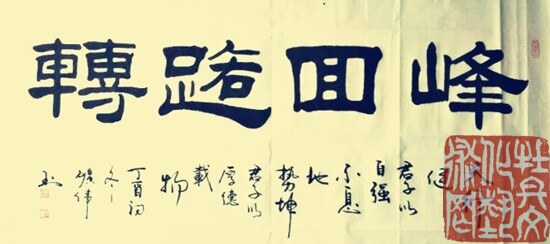 峰回路轉
健
君子以
自强
不息
地
势坤
君子以
厚德
載
物
丁酉初
冬
伟
书